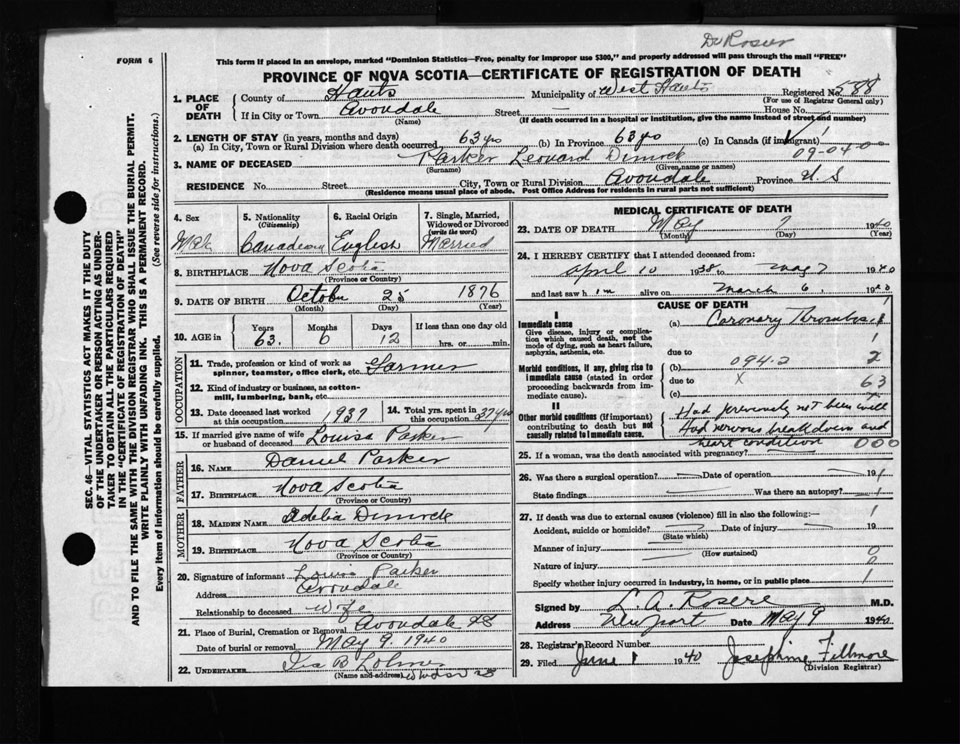 De Rosier
FORM 6
This form if placed in an envelope, marked "Dominion Statistics—Free, penalty for improper use $300," and properly addressed will pass through the mail "FREE"
PROVINCE OF NOVA SCOTIA—CERTIFICATE OF REGISTRATION OF DEATH
1. PLACE OF DEATH County of Hants Municipality of West Hants Registered No. 588
(For use of Registrar General only)
If in City or Town Avondale Street House No.
(Name) (If death occurred in a hospital or institution, give the name instead of street and number)
2. LENGTH OF STAY (in years, months and days)
(a) In City, Town or Rural Division where death occurred 63 yrs (b) In Province 63 yrs (c) In Canada (if immigrant)
09-04-00
3. NAME OF DECEASED Parker Leonard Dimock
(Surname) (Given name or names)
RESIDENCE No. Street City, Town or Rural Division Avondale Province N S
(Residence means usual place of abode. Post Office Address for residents in rural parts not sufficient)
4. Sex Male
5. Nationality (Citizenship) Canadian
6. Racial Origin English
7. Single, Married, Widowed or Divorced (write the word) Married
8. BIRTHPLACE Nova Scotia
(Province or Country)
9. DATE OF BIRTH October 25 1876
(Month) (Day) (Year)
10. AGE in Years 63 Months 6 Days 12 If less than one day old hrs. or min.
OCCUPATION
11. Trade, profession or kind of work as spinner, teamster, office clerk, etc. Farmer
12. Kind of industry or business, as cotton-mill, lumbering, bank, etc.
13. Date deceased last worked at this occupation 1937
14. Total yrs. spent in this occupation 37 yrs
15. If married give name of wife or husband of deceased Louisa Parker
FATHER
16. NAME Daniel Parker
17. BIRTHPLACE Nova Scotia
(Province or Country)
MOTHER
18. MAIDEN NAME Adelia Dimock
19. BIRTHPLACE Nova Scotia
(Province or Country)
20. Signature of informant Louisa Parker
Address Avondale
Relationship to deceased Wife
21. Place of Burial, Cremation or Removal Avondale NS
Date of burial or removal May 9, 1940
22. UNDERTAKER Ira B
(Name and address) Windsor NS
MEDICAL CERTIFICATE OF DEATH
23. DATE OF DEATH May 7 1940
(Month) (Day) (Year)
24. I HEREBY CERTIFY that I attended deceased from:
April 10 1938 to May 7 1940
and last saw him alive on March 6, 19
CAUSE OF DEATH
I
Immediate cause
Give disease, injury or complication which caused death, not the mode of dying, such as heart failure, asphyxia, asthenia, etc.
(a) Coronary Thrombosis
due to
Morbid conditions, if any, giving rise to immediate cause (stated in order proceeding backwards from immediate cause).
(b) 094-2 2
due to X 63
(c)
II
Other morbid conditions (if important) contributing to death but not causally related to immediate cause.
Had previously not been well
Had nervous breakdown and
heart condition 000
25. If a woman, was the death associated with pregnancy?
26. Was there a surgical operation? Date of operation 19
State findings Was there an autopsy?
27. If death was due to external causes (violence) fill in also the following:—
Accident, suicide or homicide? Date of injury 19
(State which)
Manner of injury 0
(How sustained)
Nature of injury 0
Specify whether injury occurred in industry, in home, or in public place 1
Signed by L. A. Rosere M.D.
Address Newport Date May 9 1940
28. Registrar's Record Number
29. Filed June 1 1940 Josephine Fillmore
(Division Registrar)
SEC. 46—VITAL STATISTICS ACT MAKES IT THE DUTY
OF THE UNDERTAKER OR PERSON ACTING AS UNDER-
TAKER TO OBTAIN ALL THE PARTICULARS REQUIRED
IN THE "CERTIFICATE OF REGISTRATION OF DEATH"
AND TO FILE THE SAME WITH THE DIVISION REGISTRAR WHO SHALL ISSUE THE BURIAL PERMIT.
WRITE PLAINLY WITH UNFADING INK. THIS IS A PERMANENT RECORD.
Every item of information should be carefully supplied. (See reverse side for instructions.)